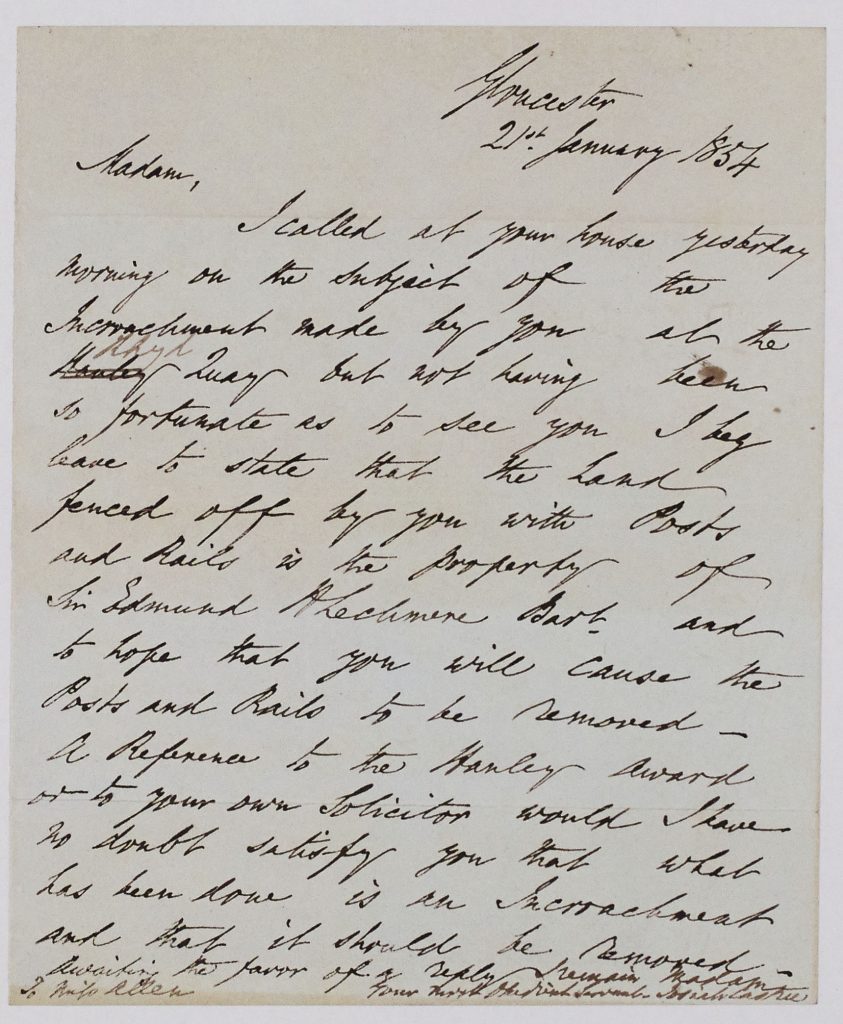 Gloucester
21st January 1854
Madam,
I called at your house yesterday
morning on the subject of the
Incroachment made by you at the
Rhyd
Hanley Quay but not having been
so fortunate as to see you I beg
leave to state that the Land
fenced off by you with Posts
and Rails is the property of
Sir Edmund H Lechmere Bart. and
to hope that you will cause the
Posts and Rails to be removed –
A Reference to the Hanley Award
or to your own Solicitor would I have
no doubt satisfy you that what
has been done is an Incroachment
and that it should be removed –
Awaiting the favor of a reply I remain Madam
To Miss Allen
Your most Obedient Servant Josiah Castree